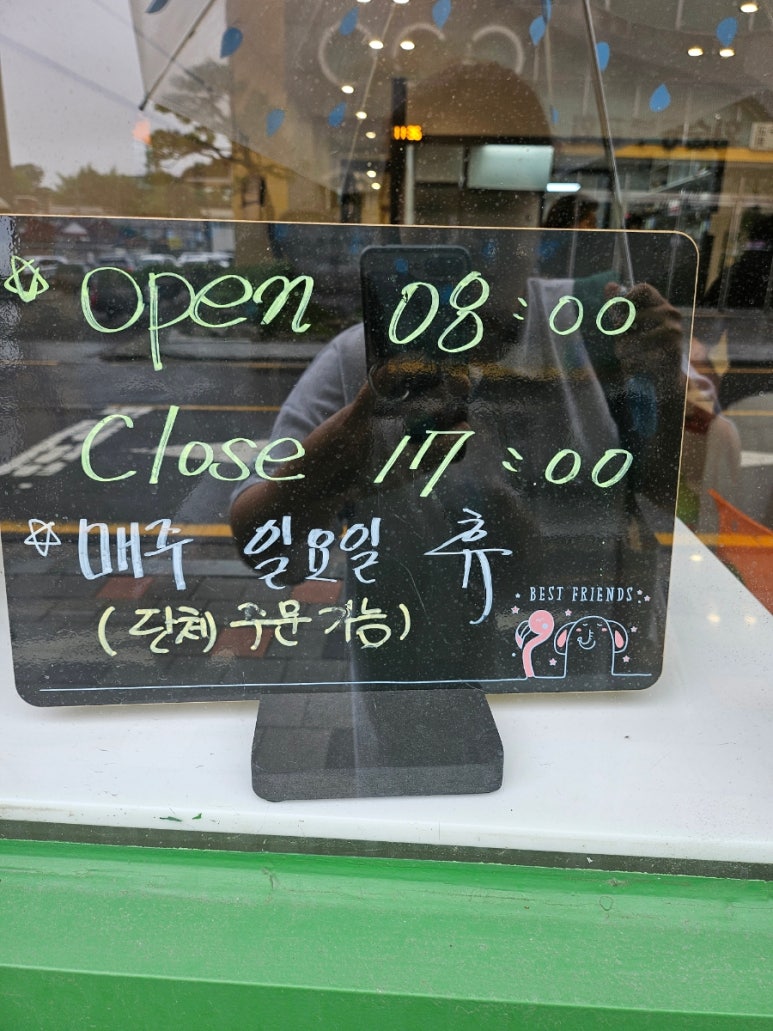 Open 08:00
Close 17:00
매주 일요일 휴
(단체 주문 가능)
BEST FRIENDS